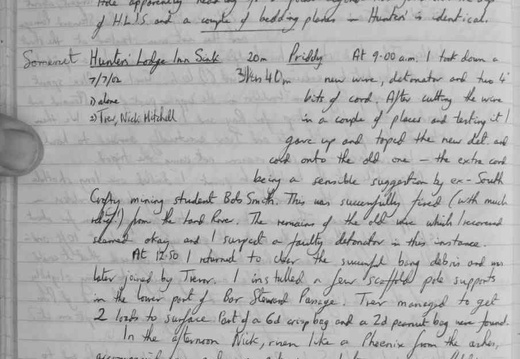 of H.L.I.S and a couple of bedding planes in Hunters' is identical.
Somerset Hunters' Lodge Inn Sink 20m Priddy At 9-00 a.m. I took down a
7/7/02 3hrs 40m new wire, detonator and two 4'
1) alone bits of cord. After cutting the wire
2) Trev, Nick Mitchell in a couple of places and testing it I
gave up and taped the new det and
cord onto the old one - the extra cord
being a sensible suggestion by ex-South
Crofty mining student Bob Smith. This was successfully fired (with much
relief!) from the Land Rover. The remains of the old wire which I recovered
seemed okay and I suspect a faulty detonator in this instance.
At 12-50 I returned to clear the successful bang debris and was
later joined by Trevor. I installed a few scaffold pole supports
in the lower part of Bar Steward Passage. Trev managed to get
2 loads to surface. Part of a 6d crisp bag and a 2d peanut bag were found.
In the afternoon Nick, risen like a Phoenix from the ashes,